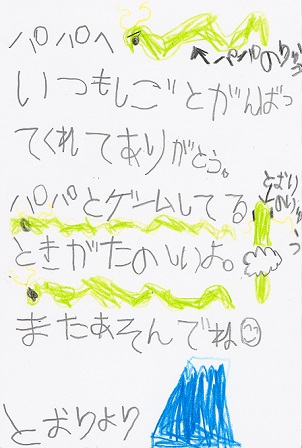 パパへ
パパのりゅう
いつもしごとがんばっ
てくれてありがとう。
パパとゲームしてる
とおりの
ときがたのしいよ。
またあそんでね
とおりより